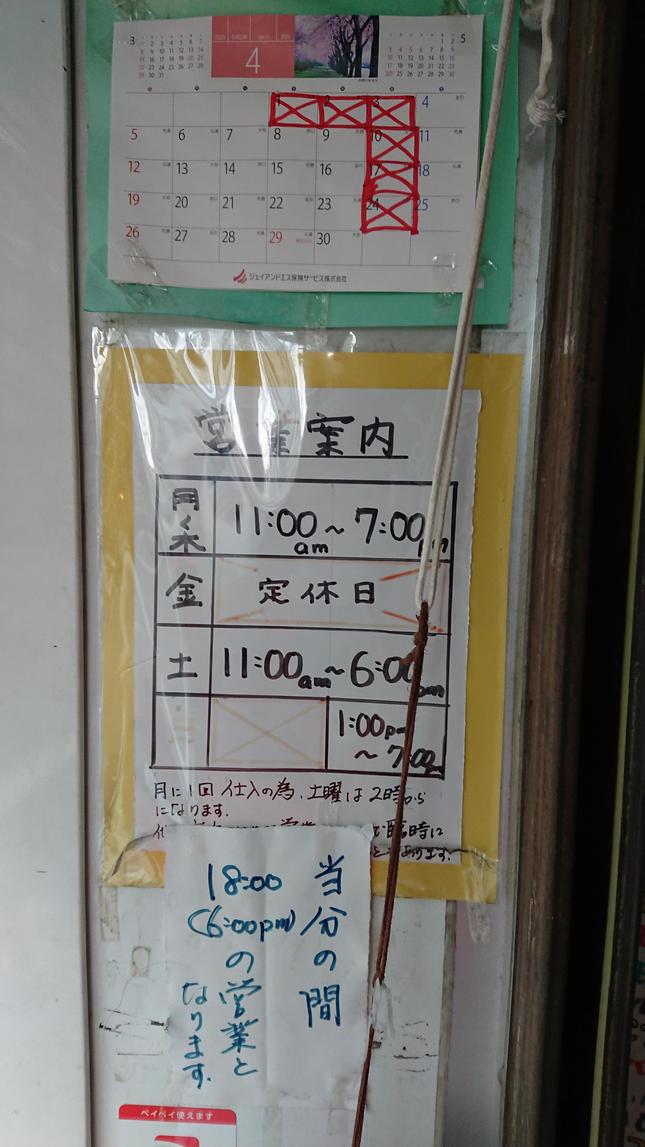 3
4
5
1 2 3 4
5 6 7 8 9 10 11
12 13 14 15 16 17 18
19 20 21 22 23 24 25
26 27 28 29 30
ジェイアンドエス保険サービス株式会社
営業案内
月〜木 11:00am～7:00pm
金 定休日
土 11:00am～6:00pm
1:00pm
～7:00pm
月に1回 仕入の為、土曜は2時から
になります.
臨時に
とあります.
当分の間
18:00
(6:00pm)
の営業と
なります.
ペイペイ使えます